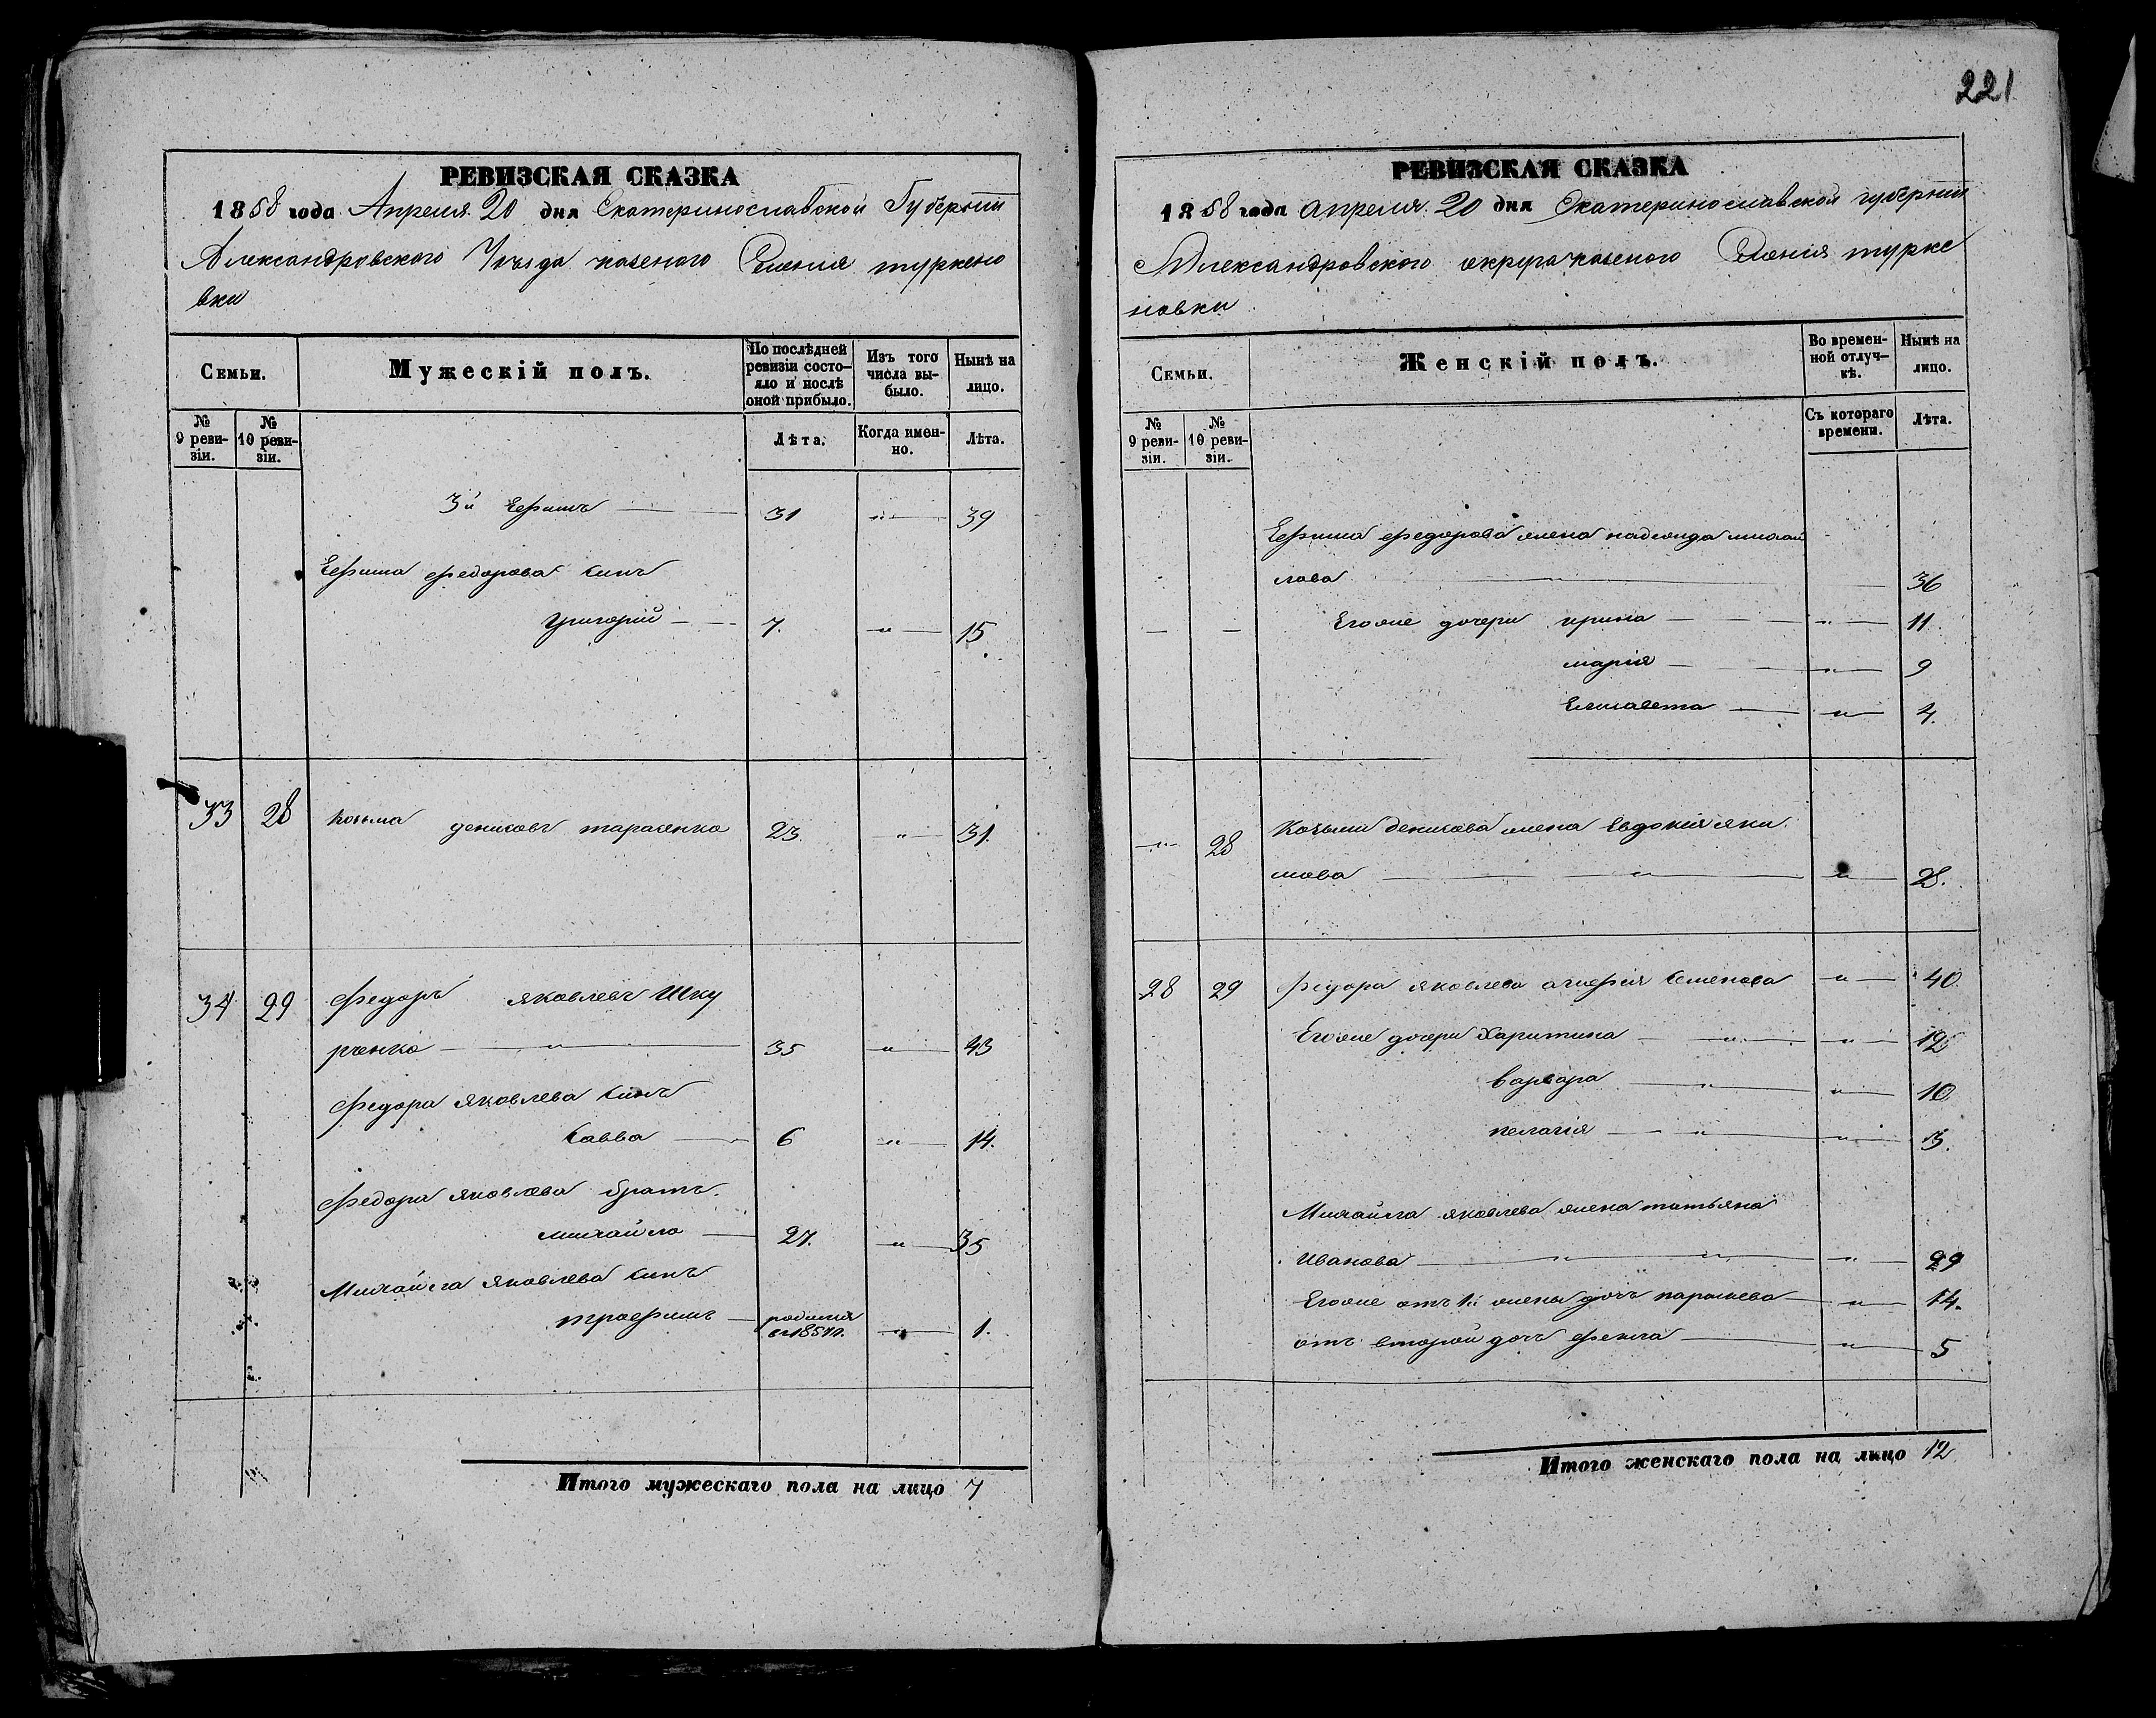 РЕВИЗСКАЯ СКАЗКА
1858 года Апреля 20 дня Екатеринославской Губернии
Александровского Уезда казеного Селения туркено
вки
Семьи.
Мужескій полъ.
По послѣдней ревизіи состояло и послѣ оной прибыло.
Изъ того числа выбыло.
Нынѣ на лицо.
№ 9 ревизіи.
№ 10 ревизіи.
Лѣта.
Когда именно.
Лѣта.
3й Ефимъ 31 " 39
Ефима федорова синъ
григорій 7. " 15
33 28 козьма денисовъ тарасенко 23. " 31.
34 29 федоръ яковлевъ Шку
рченко " 35 " 43
федора яковлева синъ
Савва 6 " 14.
федора яковлева братъ.
михайло 27. " 35
Михайла яковлева синъ
трофимъ родился в 1857 г. " 1.
Итого мужескаго пола на лицо 7
221
РЕВИЗСКАЯ СКАЗКА
1858 года апреля 20 дня Екатеринославской губернии
Александровского округа казеного Селения турке
новки
Семьи.
Женскій полъ.
Во временной отлучкѣ.
Нынѣ на лицо.
№ 9 ревизіи.
№ 10 ревизіи.
Съ котораго времени.
Лѣта.
Ефима федорова жена надежда михай
лова 36
Егоже дочери ирина " 11
марія " 9
Елисавета " 4.
" 28 Козьми денисова жена Евдокія яки
мова " " 28.
28 29 федора яковлева Семенова " 40
Егоже дочери Харитина " " 12
варвара " " 10
пелагія " " 3.
Михайла яковлева жена татьяна
Иванова " " " 29
Егоже отъ 1й жены дочь параскева " 14.
отъ второй дочь фекла " 5
Итого женскаго пола на лицо 12